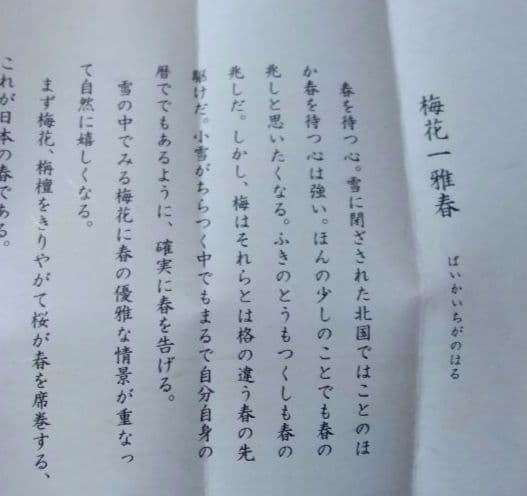 梅花一雅春
ばいかいちがのはる
春を待つ心。雪に閉ざされた北国ではことのほ
か春を待つ心は強い。ほんの少しのことでも春の
兆しと思いたくなる。ふきのとうもつくしも春の
兆しだ。しかし、梅はそれらとは格の違う春の先
駆けだ。小雪がちらつく中でもまるで自分自身の
暦ででもあるように、確実に春を告げる。
雪の中でみる梅花に春の優雅な情景が重なっ
て自然に嬉しくなる。
まず梅花、栴檀をきりやがて桜が春を席巻する、
これが日本の春である。